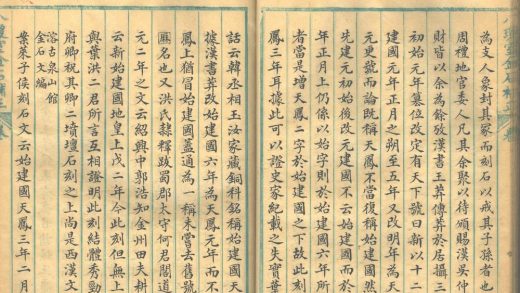 為支人象封其冢而刻石以戒其子孫者也
周禮地官委人凡其余聚以待頒賜漢吳仲
財皆以余為餘攷漢書王莽傳莽於居攝三
初始元年篡位改定有天下號曰新以十二
建國元年正月之朔至五年又改明年為天
元更號而論既稱天鳳不當復稱始建國然
先建元初始後改元建國不云始建國而於
元年正月上仍係以始字則於始建國六年所
者當是增天鳳二字於始建國之下故此刻
鳳三年耳據此可以證史家紀載之失實葉
話云韓丞相玉汝家藏銅枓銘稱始建國天
據漢書莽改始建國六年為天鳳元年而不
鳳上猶冒始建國蓋通為一稱未嘗去舊號
匡名也又洪氏隸釋跋蜀郡太守何君閣道
元二年之文云紹興中郭浩知金州田夫耕
云新始建國地皇上戊二年今此刻但無上
與葉洪二君所言互相證明此刻結體秀勁
府卿祝其卿二墳壇石刻之上尚是西漢文
溶古泉山館
金石文編
案萊子侯刻石文云始建國天鳳三年二月